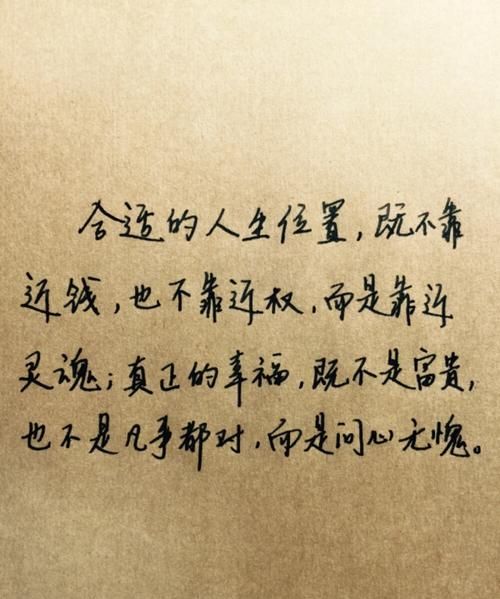 合适的人生位置，既不靠
近钱，也不靠近权，而是靠近
灵魂；真正的幸福，既不是富贵，
也不是凡事都对，而是问心无愧。